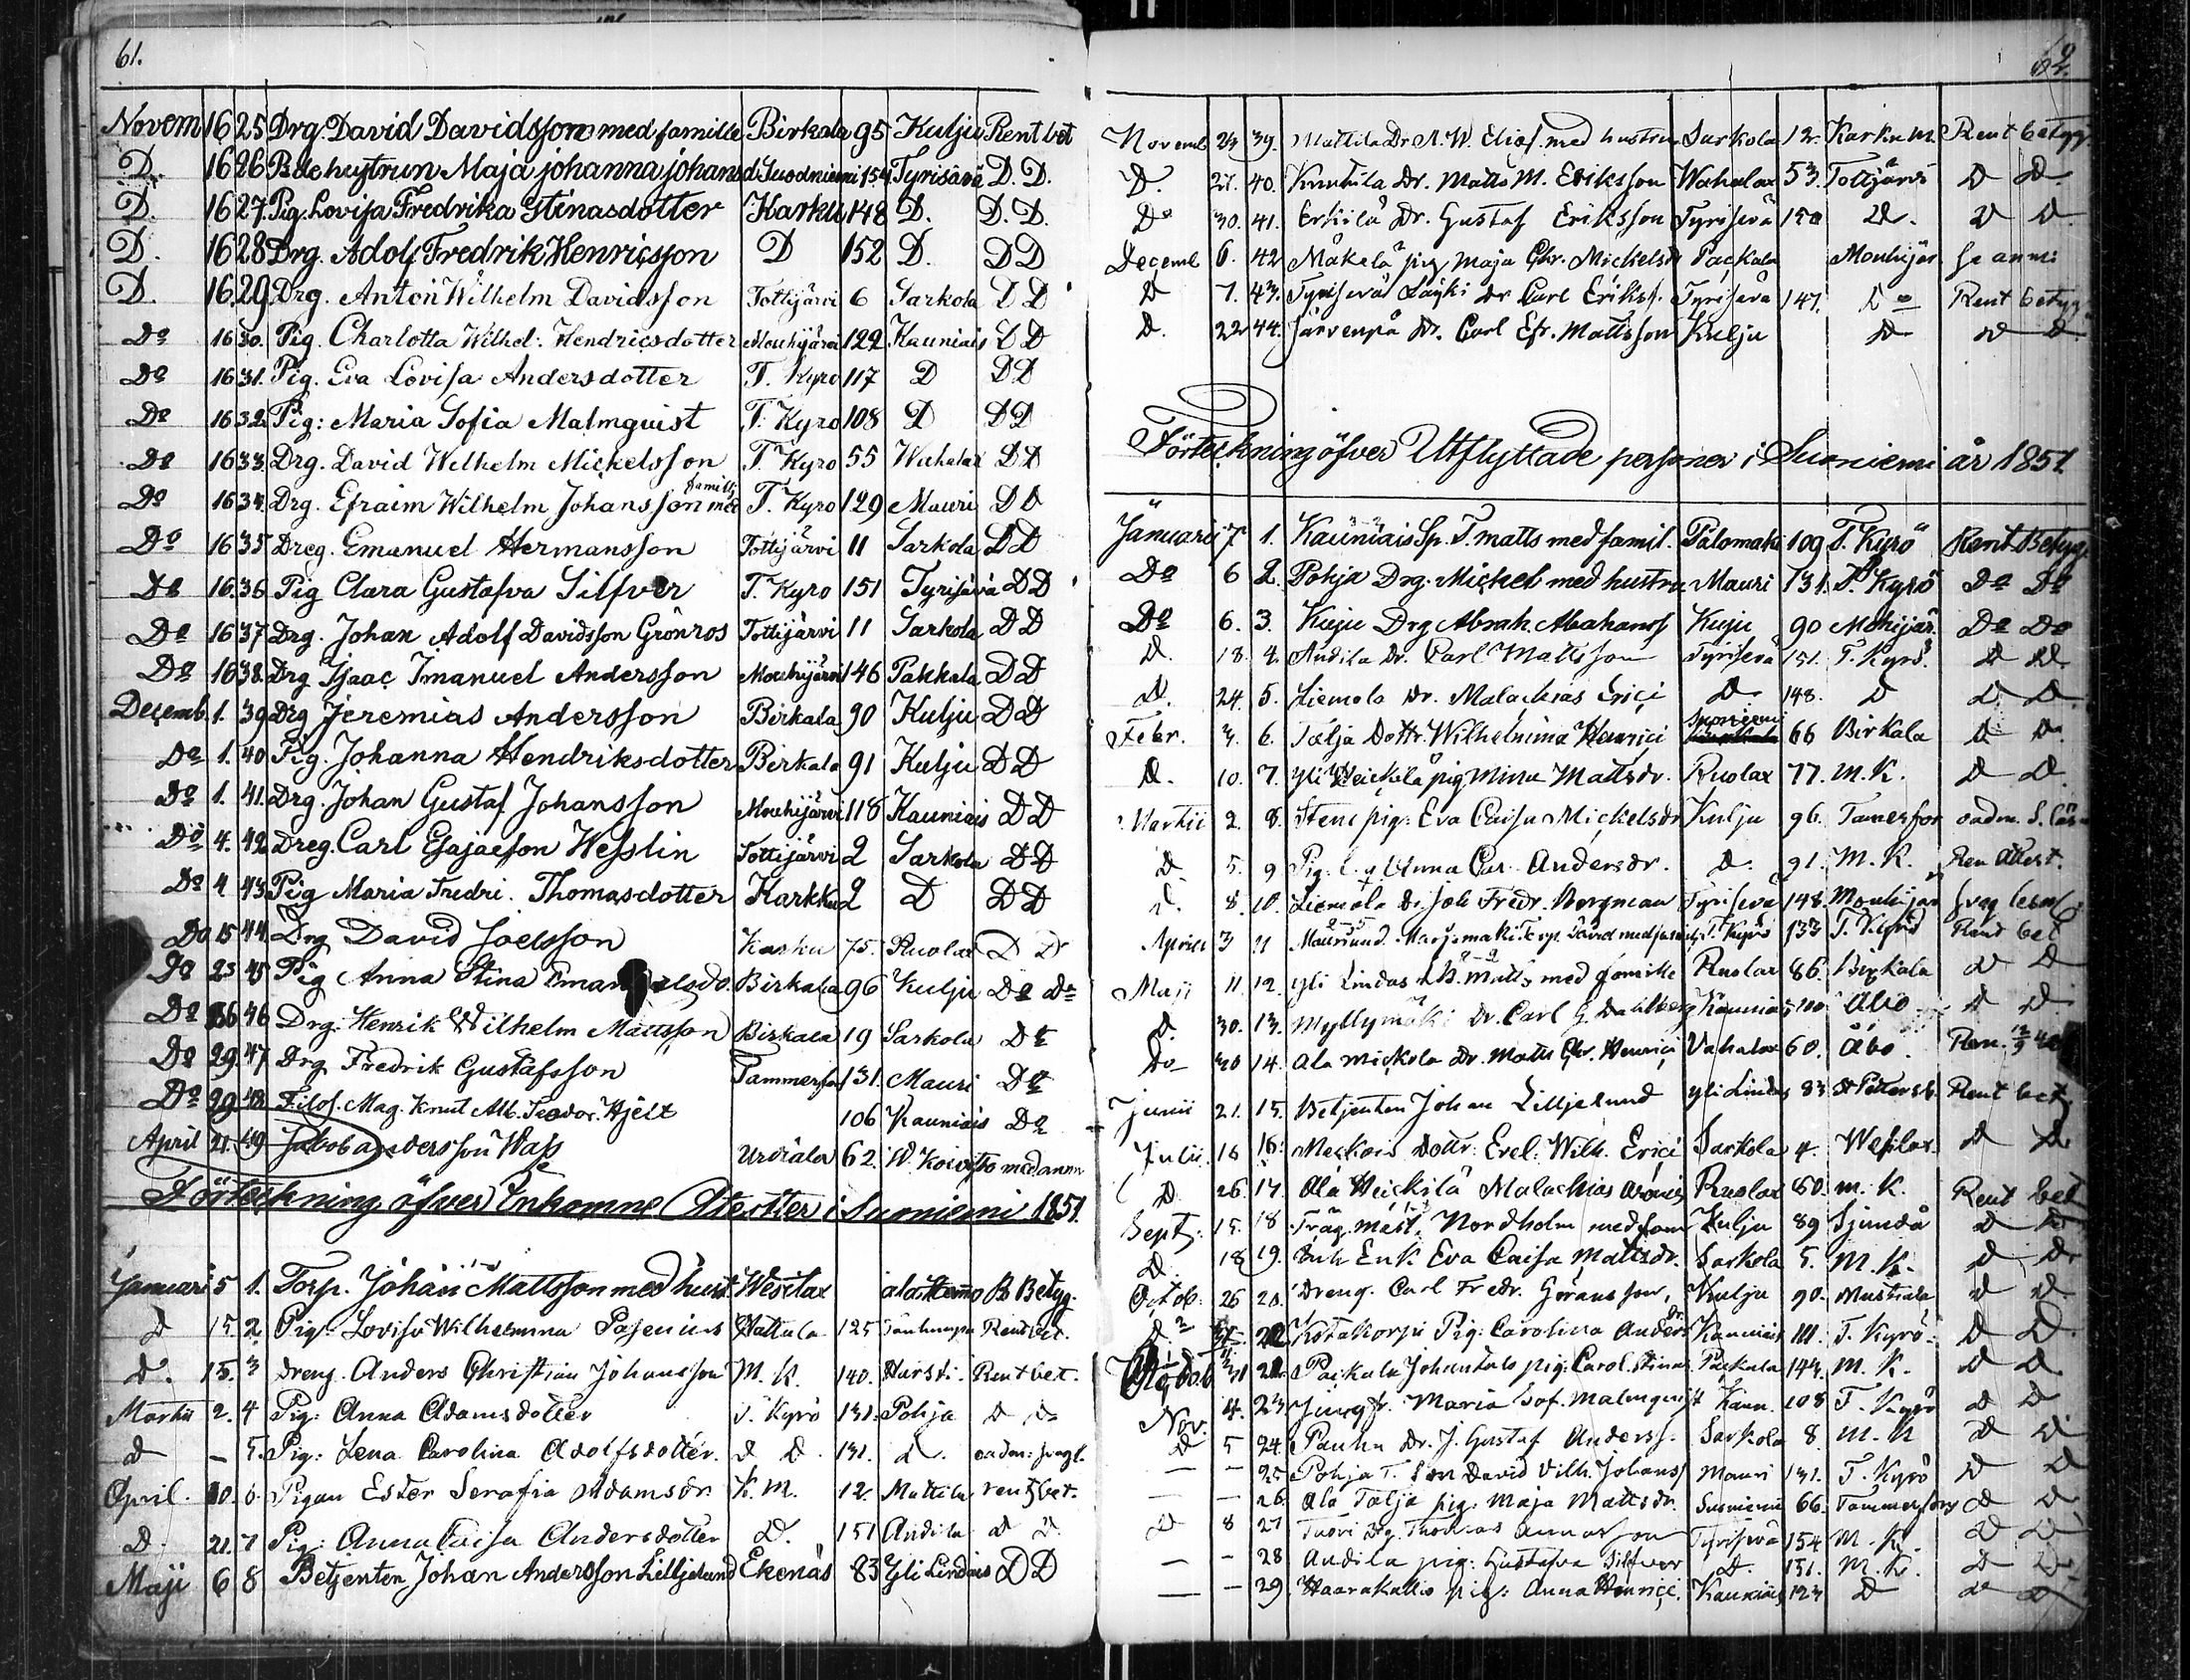 61.
Novem 16 25 Drg. David Davidsson med familie Birkala 95 Kulju Rent bet
D. 16 26 Maja johanna johansd. Suodniemi 154 Tyrisävä D. D.
D. 16 27. Pig. Lovisa Fredrika Stinasdotter Karku 148 D. D. D.
D. 16 28 Drg. Adolf Fredrik Henricsson D 152 D. D D
D. 16 29 Drg. Anton Wilhelm Davidsson Tottijärvi 6 Sarkola D D
Do 16 30. Pig. Charlotta Wilhel: Hendricsdotter Mouhijärvi 122 Kauniais D D
Do 16 31. Pig. Eva Lovisa Andersdotter T. Kyro 117 D D D
Do 16 32. Pig: Maria Sofia Malmquist T. Kyro 108 D D D
Do 16 33. Drg. David Wilhelm Mickelsson T. Kyro 55 Wahalax D D
Do 16 34. Drg. Efraim Wilhelm Johansson med familj T. Kyro 129 Mauri D D
Do 16 35 Dreg. Emanuel Hermansson Tottijärvi 11 Sarkola D D
Do 16. 36 Pig Clara Gustafva Silfver T. Kyro 151 Tyrisävä D D
Do 16 37 Drg. Johan Adolf Davidsson Grönros Tottijärvi 11 Sarkola D D
Do 16 38. Drg Isaac Imanuel Andersson Mouhijärvi 146 Pakkala D D
Decemb. 1. 39 Drg Jeremias Andersson Birkala 90 Kulju D D
Do 1. 40 Pig. Johanna Hendriksdotter Birkala 91 Kulju D D
Do 1. 41. Drg. Johan Gustaf Johansson Mouhijärvi 118 Kauniais D D
Do 4. 42 Dreg. Carl Esajaeson Wesslin Tottijärvi 2 Sarkola D D
Do 4 43 Pig Maria Fredri. Thomasdotter Karkku 2 D D D
Do 15 44 Drg David Joelsson Karku 75. Ruolax D D
Do 23 45 Pig Anna Stina Birkala 96 Kulju Do Do
Do 46 Drg. Henrik Wilhelm Mattsson Birkala 19 Sarkola Do
Do 29 47 Drg Fredrik Gustafsson Tammerfors 131. Mauri Do
Do 29 48 Filos. Mag. Knut Alb. Teodor. Hjelt 106 Kauniais Do
April 21. 49 Jakob andersson Wass Urdiala 62. W. Koivisto med ann
Förteckning öfver Inkomne Attester i Suoniemi 1851.
Januari 5 1. Torp. Johan Mattsson med hust. Wesilax B Betyg.
D 15. 2 Pig: Lovisa Wilhelmina Hattula 125 Rent bet.
D. 15. 3 dreng. Anders Christian Johansson M. K. 140. Hursti. Rent bet.
Martii 2. 4 Pig: Anna Adamsdotter T. Kyrö 131. Pohja D D
D – 5. Pig: Lena Carolina Adolfsdotter. D D. 131. D.
April. 10. 6. Pigan Ester Serafia Adamsdr K. M. 12. Mattila rent bet.
D. 21. 7 Pig: Anna Caisa Andersdotter D. 151 Andila D D.
Maji 6 8 Betjenten Johan Andersson Lilljelund Ekenäs 83 Yli Lindais D D
62.
Novemb 24 39. Mattila Dr A. W. Elias. med hustru Sarkola 12. Karku M. Rent betyg.
D. 27. 40. Knutila Dr. Matts M. Eriksson Wahalax 53. Tottijärvi D D.
Do 30. 41. Erkilä Dr. Gustaf Eriksson Tyrisevä 150 D. D D
Decemb 6. 42 Mäkelä pig Maja Chr. Mickelsdr Packala Mouhijär
D 7. 43. Tyrisevä Dr Carl Erikss. Tyrisevä 147. Do Rent betyg
D. 22 44. Järvenpä Dr. Carl Efr. Mattsson Kulju D D D.
Förteckning öfver Utflyttade personer i Suoniemi år 1851.
Januari 7 1. Kauniais Sp. T. Matts med famil. Palomaki 109 T. Kyrö Rent Betyg.
Do 6 2. Pohja Drg. Mickel med hustru Mauri 131. T. Kyrö Do Do
Do 6. 3. Kuju Drg Abrah. Abahamss Kuju 90 Mohijär. Do Do
D. 18. 4. Andila Dr. Carl Mattsson Tyrisevä 151. T. Kyrö. D D.
D. 24. 5. Liemola Dr. Malachias Erici D. 148. D D. D
Febr. 3. 6. Talja Dottr. Wilhelmina Henrici Suoniemi 66 Birkala D D
D. 10. 7. Yli Heickilä pig Mina Mattsdr. Ruolax 77. M. K. D D.
Martii 2. 8. Stens pig: Eva Caisa Mickelsdr Kulju 96. Tamerfor
D. 5. 9 Pig: Anna Car. Andersdr. D. 91. M. K. Ren Attest.
D. 8. 10. Liemola Dr Joh Fredr. Bergman Tyrisevä 148. Mouhijär
April 3 11 T. Kyrö 133 T. Kyrö Rent bet
Maji 11. 12. Yli Lindas Matts med familie Ruolax 86. Birkala D D
D. 30. 13. Myllymäki Dr. Carl G. Dahlberg Kauniais 110 Åbo D D.
Do 30 14. Ala Mickola Dr. Matts Chr. Henrici Vahalax 60. Åbo. Ren.
Junii 21. 15. Betjenten Johan Lilljelund Yli Lindas 83 St Petersb. Rent bety
Julii. 16 16: Dottr: Evel. Wilh. Erici Sarkola 4. Wesilax. D D
D. 26. 17. Ala Heickilä Malachias Ruolax 80. M. K. Rent bet
Sept: 15. 18 Träg. mäst. Nordholm med fam Kulju 89 Sjundå D D
D. 18 19. Enk. Eva Caisa Mattsdr. Sarkola 5. M. K. D D
Octob. 26 20. Dreng. Carl Fredr. Göransson, Kulju 90. D D
Kotakorpi Pig: Carolina Anders dr. Kauniais 111. T. Kyrö. D D.
31 Packala Johantalo pig: Carol. Stina Packala 144. M. K. D D
Nov. 4. 23 Jungfr. Maria Sof. Malmquist Kaun. 108 T. Kyrö D D
D 5 24. Pauhu Dr. J. Gustaf Anderss. Sarkola 8. M. K D D
– – 25 Pohja T. Son David Vilh. Johanss Mauri 131. T. Kyrö D D
– – 26. Ala Talja pig: Maja Mattsdr. Suoniemi 66. Tammerfors D D
D 8 27 Tuori Drg. Thomas Tyrisevä 154 M. K. D D
– – 28 Andila pig: Gustafva Silfver D. 151. M. K. D D
– – 29. Haarakallio pig: Anna Henrici. Kauniais 123 D D D